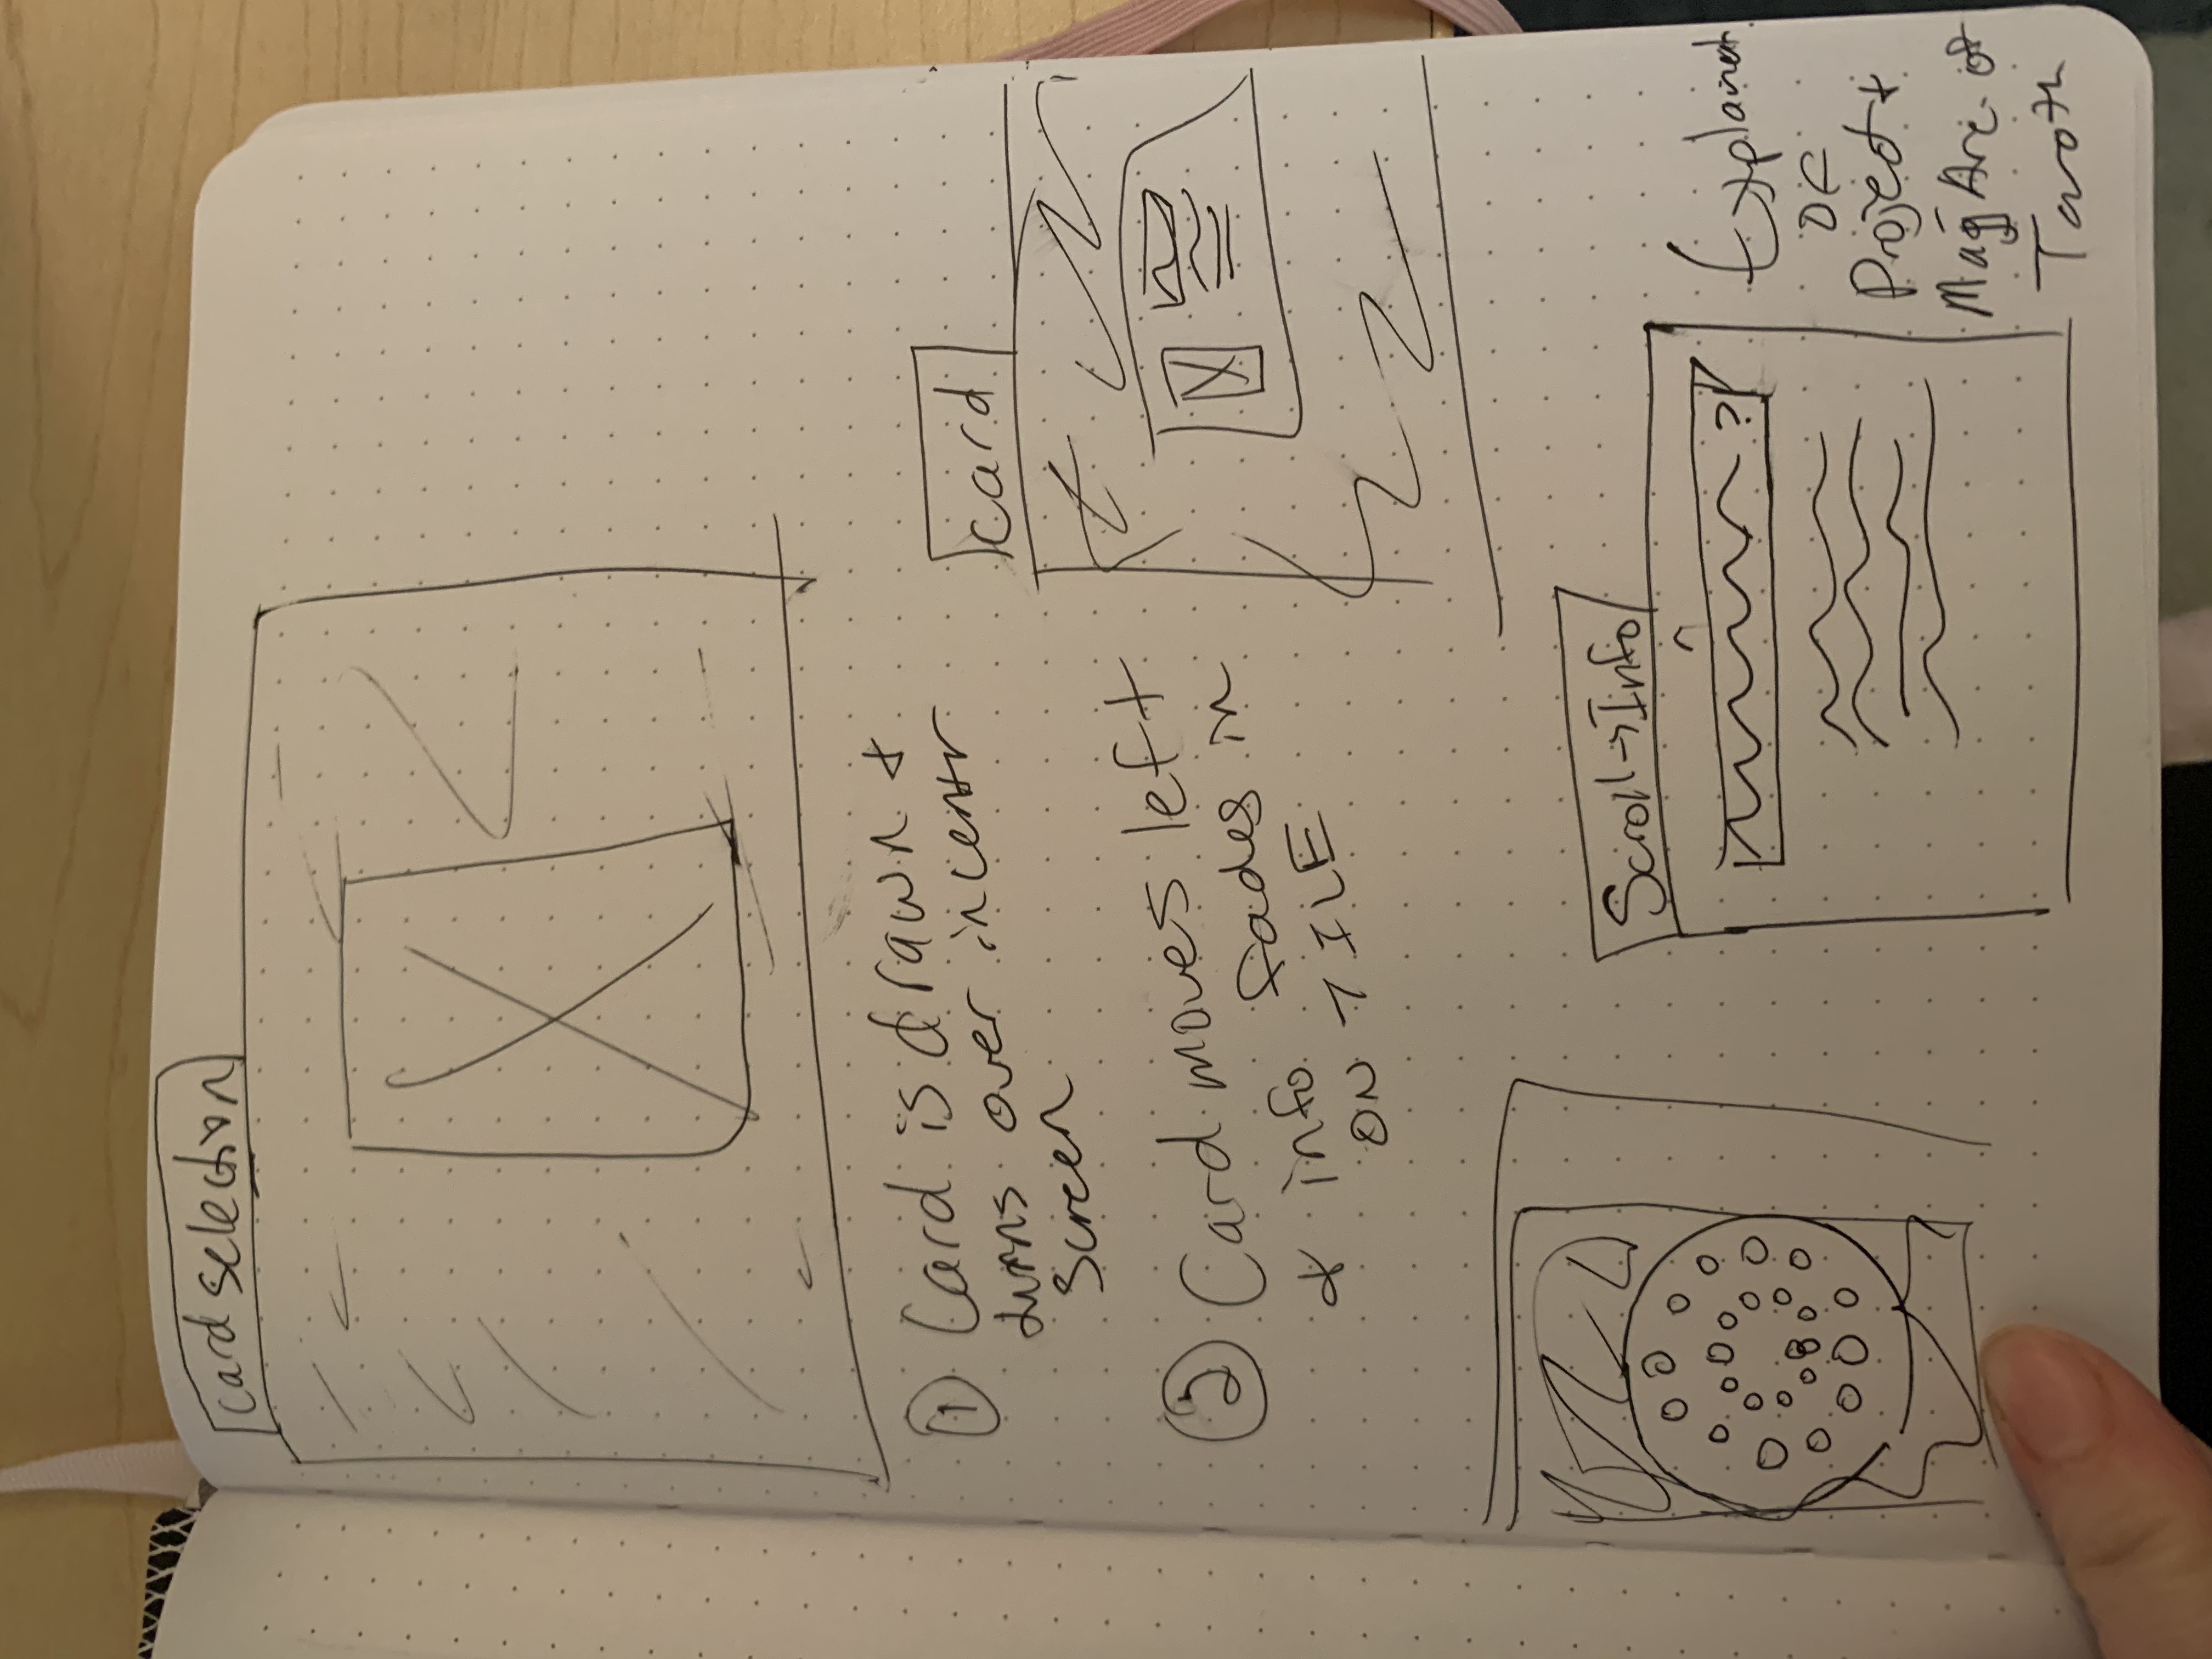 card selection
① Card is drawn +
turns over in centr
screen
② Card moves left
+ info fades in
ON TILE
card
Scroll→Info
?
Explanat
OF
Project +
Maj Arc. of